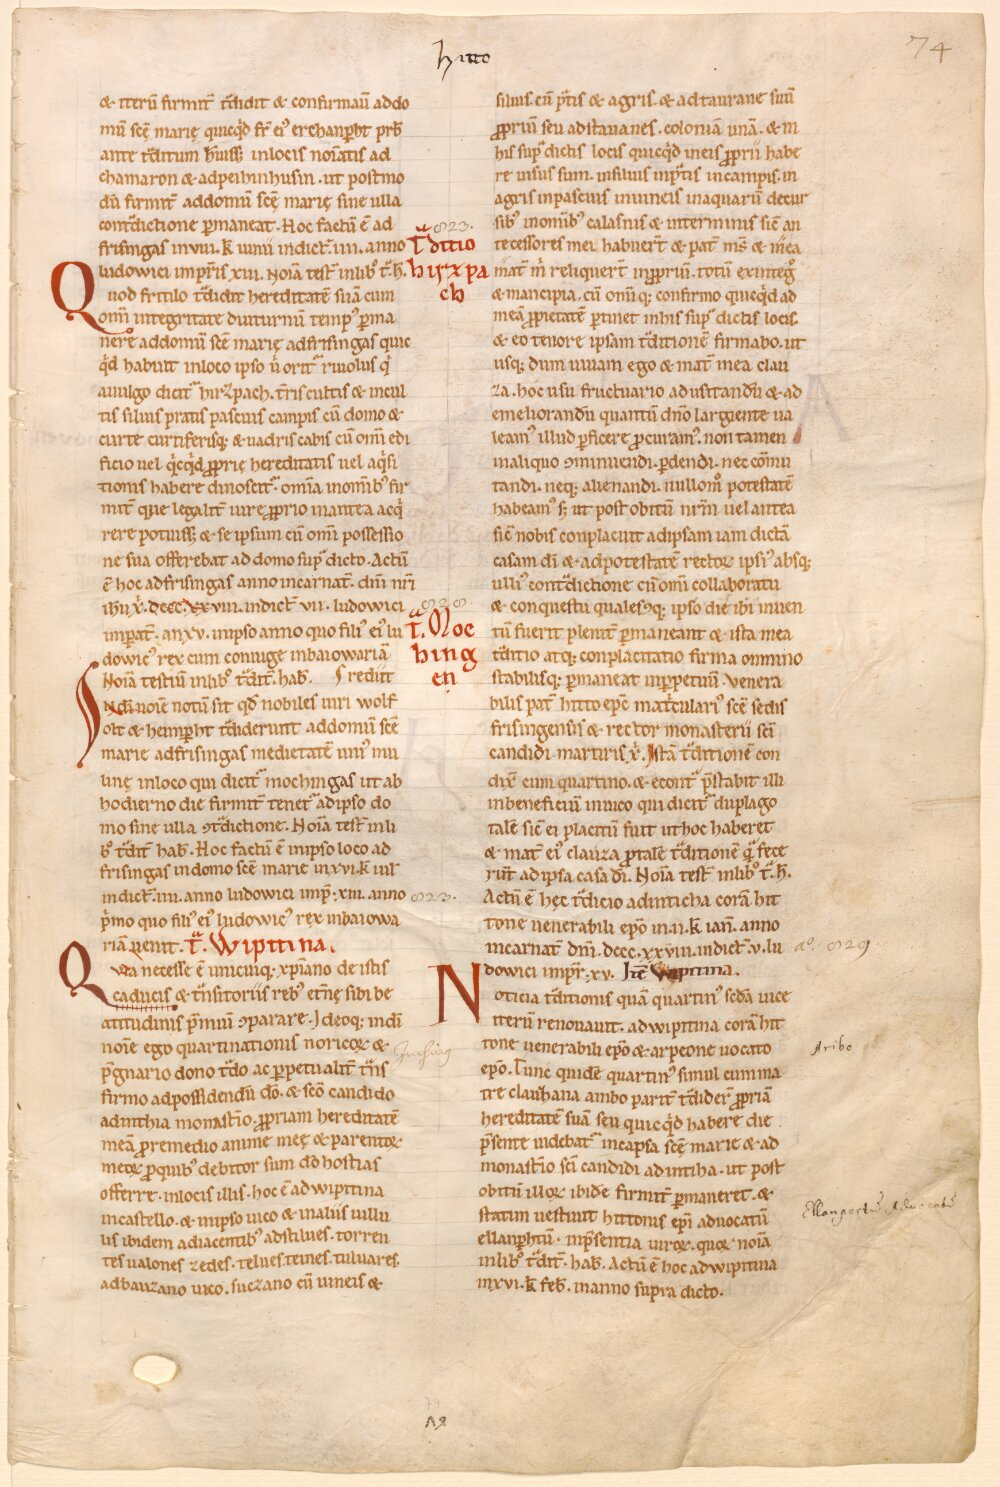 hitto
74
& iterū firmit̄ t̄didit & confirmaū addo
mū scē marię quicq̄d fr̄ ei᾽ erchanꝑht prb̄
ante t̄ditum h̄uiss; inlocis noīatis ad
chamaron & adpeihinhusin. ut postmo
dū firmit̄ addomū scē marię sine ulla
contᷓdictione ꝑmaneat. Hoc factū ē ad
frisingas inviii. k̄ iunii indict̄. iiii. anno
ludowici imꝑris xiii. Noīa test̄ inlib᾽ t̄. h̄.
Quod fritilo t̄didit hereditatē suā cum
omī integritate diuturnū temp᾽ ꝑma
nere addomū scē marię adfrisingas quic
q̄d habuit inloco ipso u᷑ oritᷓ riuolus q᷑
auulgo dicitᷓ hirzpach. t̄ris cultis & incul
tis siluis pratis pascuis campis cū domo &
curte curtiferisq; & uadris cabis cū omī edi
ficio uel q᷑cq̄d ꝓprię hereditatis uel aq᷑si
tionis habere dinoscitᷓ. omīa inomīb᾽ fir
mit̄ quę legalit̄ iure ꝓprio inantea acq᷑
rere potuiss; & se ipsum cū omī possessio
ne sua offerebat ad domo supᷓ dicto. Actū
ē hoc adfrisingas anno incarnat̄. dn̄i nr̄i
ih̄u x᷑. dccc. xxviii. indict̄. vii. ludowici
imꝑat̄. an xv. inipso anno quo fili᾽ ei᾽ lu
dowic᾽ rex cum coniuge inbaiowariā
Noīa testiū inlib᾽ t̄dit̄. hab̄. rediit
In dī noīe notū sit qd̄ nobiles uiri wolf
olt & heimꝑht t̄diderunt addomū scē
marie adfrisingas medietatē uni᾽ mu
linę inloco qui dicitᷓ mochingas ut ab
hodierno die firmit̄ tenetᷓ adipso do
mo sine ulla ꝯt̄dictione. Noīa test̄ inli
b᾽ t̄dit̄ hab̄. Hoc factū ē inipso loco ad
frisingas indomo scē marie inxvi. k̄ iul̄
indict̄. iiii. anno ludowici imp̄. xiii. anno
p᷑mo quo fili᾽ ei᾽ ludowic᾽ rex inbaiowa
riā uenit. t̄. Wipitina.
Quia necesse ē unicuiq; xp̄iano de istis
caducis & tᷓnsitoriis reb᾽ et̄nę sibi be
atitudinis p᷑miū ꝯparare. Ideoq; indī
noīe ego quartinationis noricoꝝ &
p᷑gnario dono t̄do ac ꝑpetualit̄ tᷓns
firmo adpossidendū dō. & scō candido
adinthia monast̄io. ꝓpriam hereditatē
meā ꝓremedio anime meę & parentoꝝ
meoꝝ ꝓquib᾽ debitor sum dō hostias
offerre. inlocis illis. hoc ē ad wipitina
incastello. & inipso uico & inaliis uillu
lis ibidem adiacentib᾽ adstilues. torren
tes ualones zedes. telues teines. tuluares.
adbauzano uico. suczano cū uineis &
823.
t̄ditio
hirzpa
ch
828.
t̄. Moc
hing
en
823.
siluis. cū p᷑tis & agris. & adtaurane suū
ꝓpriū seu adstauanes. coloniā unā. & in
his supᷓ dictis locis quicq̄d ineis ꝓprii habe
re uisus sum. insiluis inp᷑tis incampis. in
agris inpascuis inuineis inaquarū decur
sib᾽ inomīb᾽ calasnis & interminis sic̄ an
tecessores mei habuer̄t & pat̄ ms̄ & mea
mat̄ m̄ reliquer̄t inꝓpriū. totū exinteg᷑
& mancipia. cū omīq; confirmo quicq̄d ad
meā ꝓpietatē ꝑtinet inhis supᷓ dictis locis.
& eo tenore ipsam t̄ditionē firmabo. ut
usq; dum uiuam ego & mat̄ mea clau
za. hoc usu fructuario adusitandū & ad
emeliorandū quantū dn̄o largiente ua
leam᾽ illud ꝑficere ꝓcuram᾽. non tamen
inaliquo ꝯminuendi. ꝑdendi. nec cōmu
tandi. neq; alienandi. nullom̊ potestatē
habeam᾽ s; ut post obitū nr̄m uel antea
sic̄ nobis conplacuit adipsam iam dictā
casam dī & adpotestatē rectoꝝ ipsi᾽ absq;
ulli᾽ cont̄dictione cū omī collaboratu
& conquestu qualescūq; ipso die ibi inuen
tū fuerit plenit̄ ꝑmaneant & ista mea
t̄ditio atq; conplacitatio firma omnino
stabilisq; ꝑmaneat inꝑpetuū. Venera
bilis pat̄ hitto epc̄ mat̄culari᾽ scē sedis
frisingensis & rector monasterii scī
candidi martiris x᷑. Istā t̄ditionē con
dix̄ cum quartino. & econtᷓ p᷑stabit illi
inbeneficiū inuico qui dicitᷓ duplago
talē sic̄ ei placitū fuit ut hoc haberet
& mat̄ ei᾽ clauza ꝓtalē t̄ditionē q᷑ fece
rūt adipsa casa dī. Noīa test̄ inlib᾽ t̄. h̄.
Actū ē hęc t̄dicio adinticha corā hit
tone uenerabili epō in.ii. k̄ ian̄. anno
incarnat̄ dn̄i. dccc. xxviii. indict̄. v. lu
dowici imp̄r. xv. Itē Wipitina.
Noticia t̄ditionis quā quartin᾽ scd̄a uice
iterū renouauit. ad wipitina corā hit
tone uenerabili epō & arpeone uocato
epō. Tunc quidē quartin᾽ simul cum ma
tre clauhana ambo parit̄ t̄dider̄ ꝓpriā
hereditatē suā seu quicq̄d habere die
p᷑sente uidebatᷓ incapsa scē marie & ad
monast̄io scī candidi ad intiha. ut post
obitū illoꝝ ibidē firmit̄ ꝑmaneret. &
statim uestiuit hittonis epī aduocatū
ellanꝑhtū. inp᷑sentia uiroꝝ. quoꝝ noīa
inlib᾽ t̄dit̄. hab̄. Actū ē hoc adwipitina
inxvi. k̄ feb̄. inanno supra dicto.
aº. 829.
Aribo
Ellanpertū Aduocatū